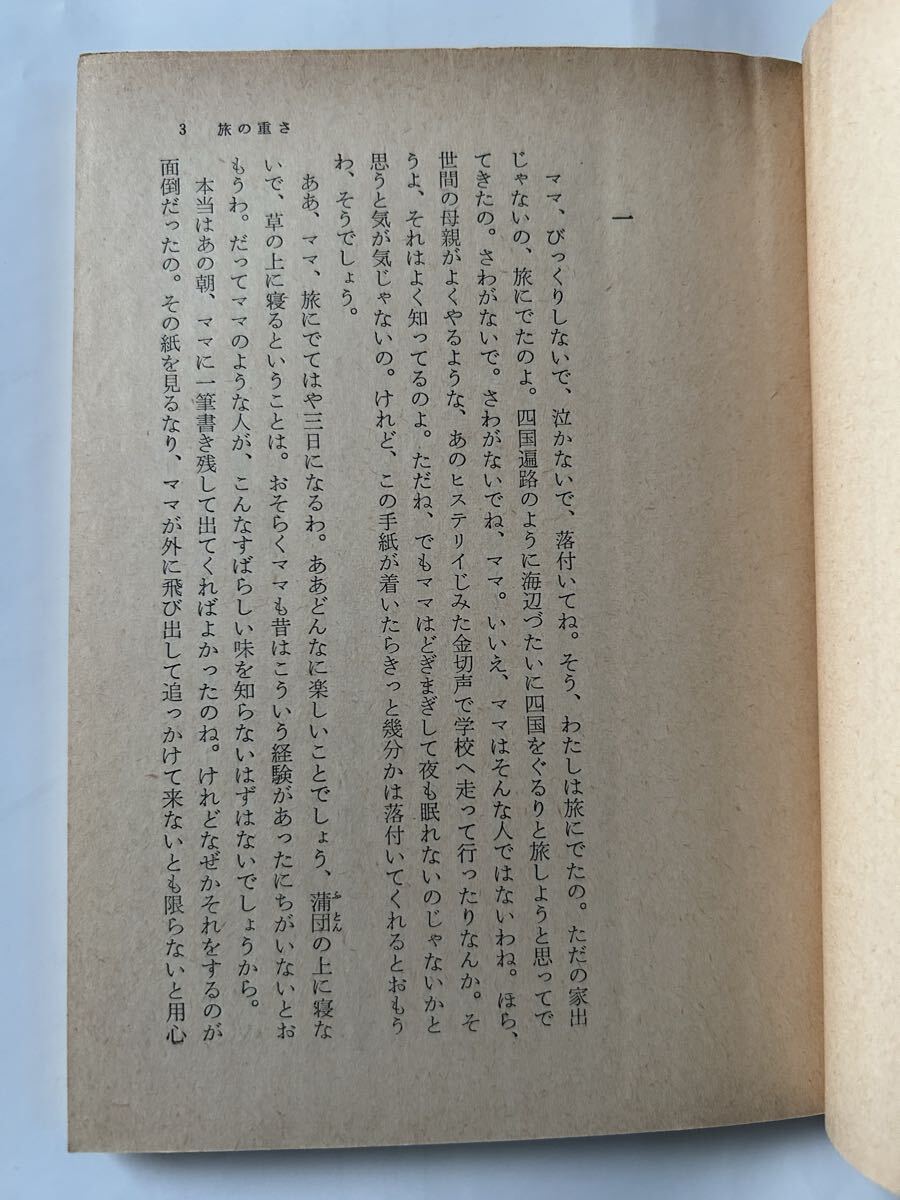 3 旅の重さ
一
ママ、びっくりしないで、泣かないで、落付いてね。そう、わたしは旅にでたの。ただの家出
じゃないの、旅にでたのよ。四国遍路のように海辺づたいに四国をぐるりと旅しようと思ってで
てきたの。さわがないで。さわがないでね、ママ。いいえ、ママはそんな人ではないわね。ほら、
世間の母親がよくやるような、あのヒステリイじみた金切声で学校へ走って行ったりなんか。そ
うよ、それはよく知ってるのよ。ただね、でもママはどぎまぎして夜も眠れないのじゃないかと
思うと気が気じゃないの。けれど、この手紙が着いたらきっと幾分かは落付いてくれるとおもう
わ、そうでしょう。
ああ、ママ、旅にでてはや三日になるわ。ああどんなに楽しいことでしょう、蒲団の上に寝な
いで、草の上に寝るということは。おそらくママも昔はこういう経験があったにちがいないとお
もうわ。だってママのような人が、こんなすばらしい味を知らないはずはないでしょうから。
本当はあの朝、ママに一筆書き残して出てくればよかったのね。けれどなぜかそれをするのが
面倒だったの。その紙を見るなり、ママが外に飛び出して追っかけて来ないとも限らないと用心